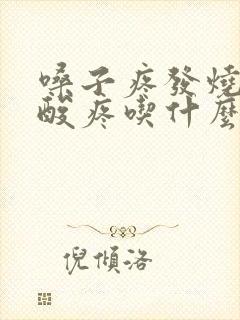 嗓子疼發燒
酸疼喫什麼
倪傾洛